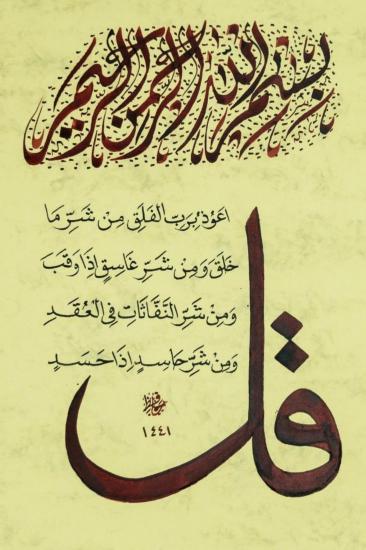 بسم الله الرحمن الرحيم
قل
اعوذ برب الفلق من شر ما
خلق ومن شر غاسق اذا وقب
ومن شر النفاثات في العقد
ومن شر حاسد اذا حسد
١٤٤١